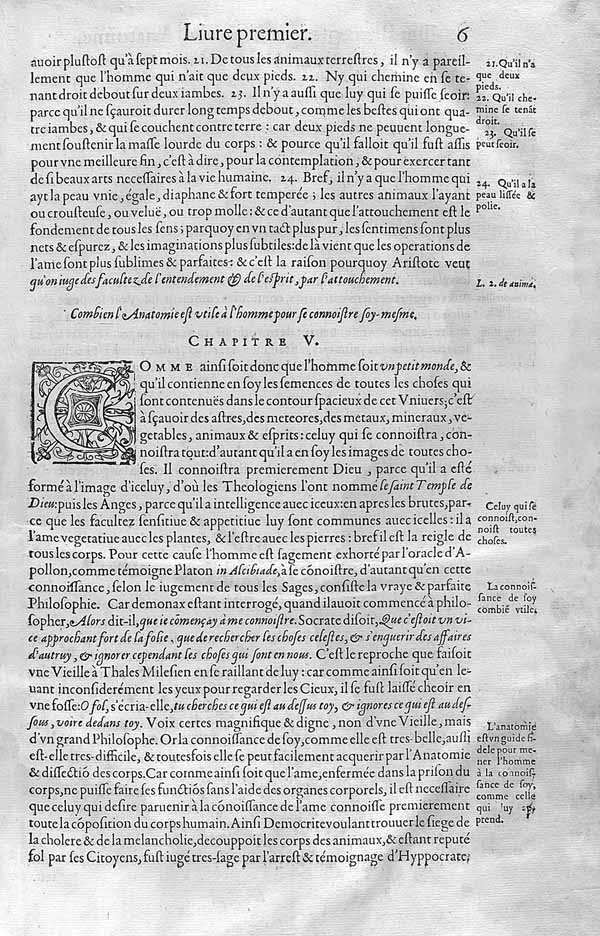 Liure premier. 6
auoir plustost qu'à sept mois. 21. De tous les animaux terrestres, il n'y a pareil-
lement que l'homme qui n'ait que deux pieds. 22. Ny qui chemine en se te-
nant droit debout sur deux iambes. 23. Il n'y a aussi que luy qui se puisse seoir:
parce qu'il ne sçauroit durer long temps debout, comme les bestes qui ont qua-
tre iambes, & qui se couchent contre terre : car deux pieds ne peuuent longue-
ment soustenir la masse lourde du corps : & pource qu'il falloit qu'il fust assis
pour vne meilleure fin, c'est à dire, pour la contemplation, & pour exercer tant
de si beaux arts necessaires à la vie humaine. 24. Bref, il n'y a que l'homme qui
ayt la peau vnie, égale, diaphane & fort temperée ; les autres animaux l'ayant
ou crousteuse, ou veluë, ou trop molle : & ce d'autant que l'attouchement est le
fondement de tous les sens ; parquoy en vn tact plus pur, les sentimens sont plus
nets & espurez, & les imaginations plus subtiles: de là vient que les operations de
l'ame sont plus sublimes & parfaites: & c'est la raison pourquoy Aristote veut
qu'on iuge des facultez de l'entendement & de l'esprit, par l'attouchement.
21. Qu'il n'a
que deux
pieds.
22. Qu'il che-
mine se tenãt
droit.
23. Qu'il se
peut seoir.
24. Qu'il a la
peau lissée &
polie.
L. 2. de anima.
Combien l'Anatomie est vtile à l'homme pour se connoistre soy-mesme.
CHAPITRE V.
COMME ainsi soit donc que l'homme soit vn petit monde, &
qu'il contienne en soy les semences de toutes les choses qui
sont contenuës dans le contour spacieux de cet Vniuers; c'est
à sçauoir des astres, des meteores, des metaux, mineraux, ve-
getables, animaux & esprits: celuy qui se connoistra, con-
noistra tout: d'autant qu'il a en soy les images de toutes cho-
ses. Il connoistra premierement Dieu , parce qu'il a esté
formé à l'image d'iceluy, d'où les Theologiens l'ont nommé le saint Temple de
Dieu: puis les Anges, parce qu'il a intelligence auec iceux: en apres les brutes, par-
ce que les facultez sensitiue & appetitiue luy sont communes auec icelles : il a
l'ame vegetatiue auec les plantes, & l'estre auec les pierres : bref il est la reigle de
tous les corps. Pour cette cause l'homme est sagement exhorté par l'oracle d'A-
pollon, comme témoigne Platon in Alcibiade, à se cõnoistre, d'autant qu'en cette
connoissance, selon le iugement de tous les Sages, consiste la vraye & parfaite
Philosophie. Car demonax estant interrogé, quand il auoit commencé à philo-
sopher, Alors dit-il, que ie cõmençay à me connoistre. Socrate disoit, Que c'estoit vn vi-
ce approchant fort de la folie, que de rechercher les choses celestes, & s'enquerir des affaires
d'autruy, & ignorer cependant les choses qui sont en nous. C'est le reproche que faisoit
vne Vieille à Thales Milesien en se raillant de luy : car comme ainsi soit qu'en le-
uant inconsiderément les yeux pour regarder les Cieux, il se fust laissé cheoir en
vne fosse: O fol, s'écria-elle, tu cherches ce qui est au dessus toy, & ignores ce qui est au des-
sous, voire dedans toy. Voix certes magnifique & digne , non d'vne Vieille, mais
d'vn grand Philosophe. Or la connoissance de soy, comme elle est tres-belle, aussi
est-elle tres-difficile, & toutesfois elle se peut facilement acquerir par l'Anatomie
& dissectiõ des corps. Car comme ainsi soit que l'ame, enfermée dans la prison du
corps, ne puisse faire ses functiõs sans l'aide des organes corporels, il est necessaire
que celuy qui desire paruenir à la cõnoissance de l'ame connoisse premierement
toute la cõposition du corps humain. Ainsi Democrite voulant trouuer le siege de
la cholere & de la melancholie, decouppoit les corps des animaux, & estant reputé
fol par ses Citoyens, fust iugé tres-sage par l'arrest & témoignage d'Hyppocrate,
Celuy qui se
connoist, con-
noist toutes
choses.
La connois-
sance de soy
combiẽ vtile.
L'anatomie
est vn guide fi-
dele pour me-
ner l'homme
à la connois-
sance de soy,
comme celle
qui luy
prend.